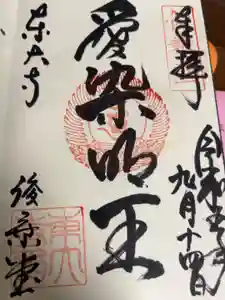 奉拝
令和五年
九月十四日
愛染明王
東大寺
後東堂